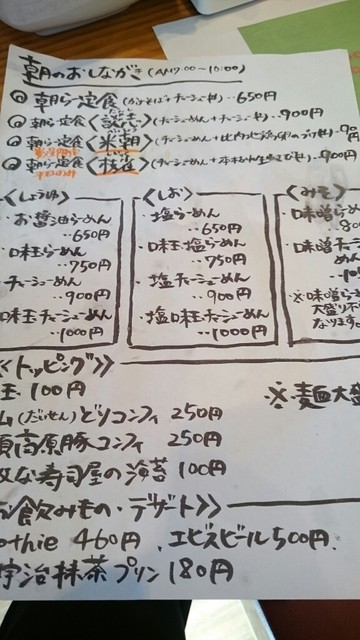 朝のおしながき (AM7:00~10:00)
朝らー定食 (かけそば+チャーシュー丼) ‥650円
朝らー定食 (チャーシューめん+チャーシュー丼) ‥900円
朝らー定食〈米朝〉(チャーシューめん+
朝らー定食〈枝雀〉(チャーシューめん+ ‥900円
〈しょうゆ〉
お醤油らーめん
‥650円
味玉らーめん
‥750円
チャーシューめん
‥900円
味玉チャーシューめん
‥1000円
〈しお〉
塩らーめん
‥650円
味玉塩らーめん
‥750円
塩チャーシューめん
‥900円
塩味玉チャーシューめん
‥1000円
〈みそ〉
味噌らーめん
味噌チャーシュー
めん
※味噌らー
大盛り不
なります。
《トッピング》
玉 100円
※麺大盛
(だいせん)どりコンフィ 250円
高原豚コンフィ 250円
な寿司屋の海苔 100円
お飲みもの・デザート》
othie 460円、エビスビール500円、
宇治抹茶プリン 180円